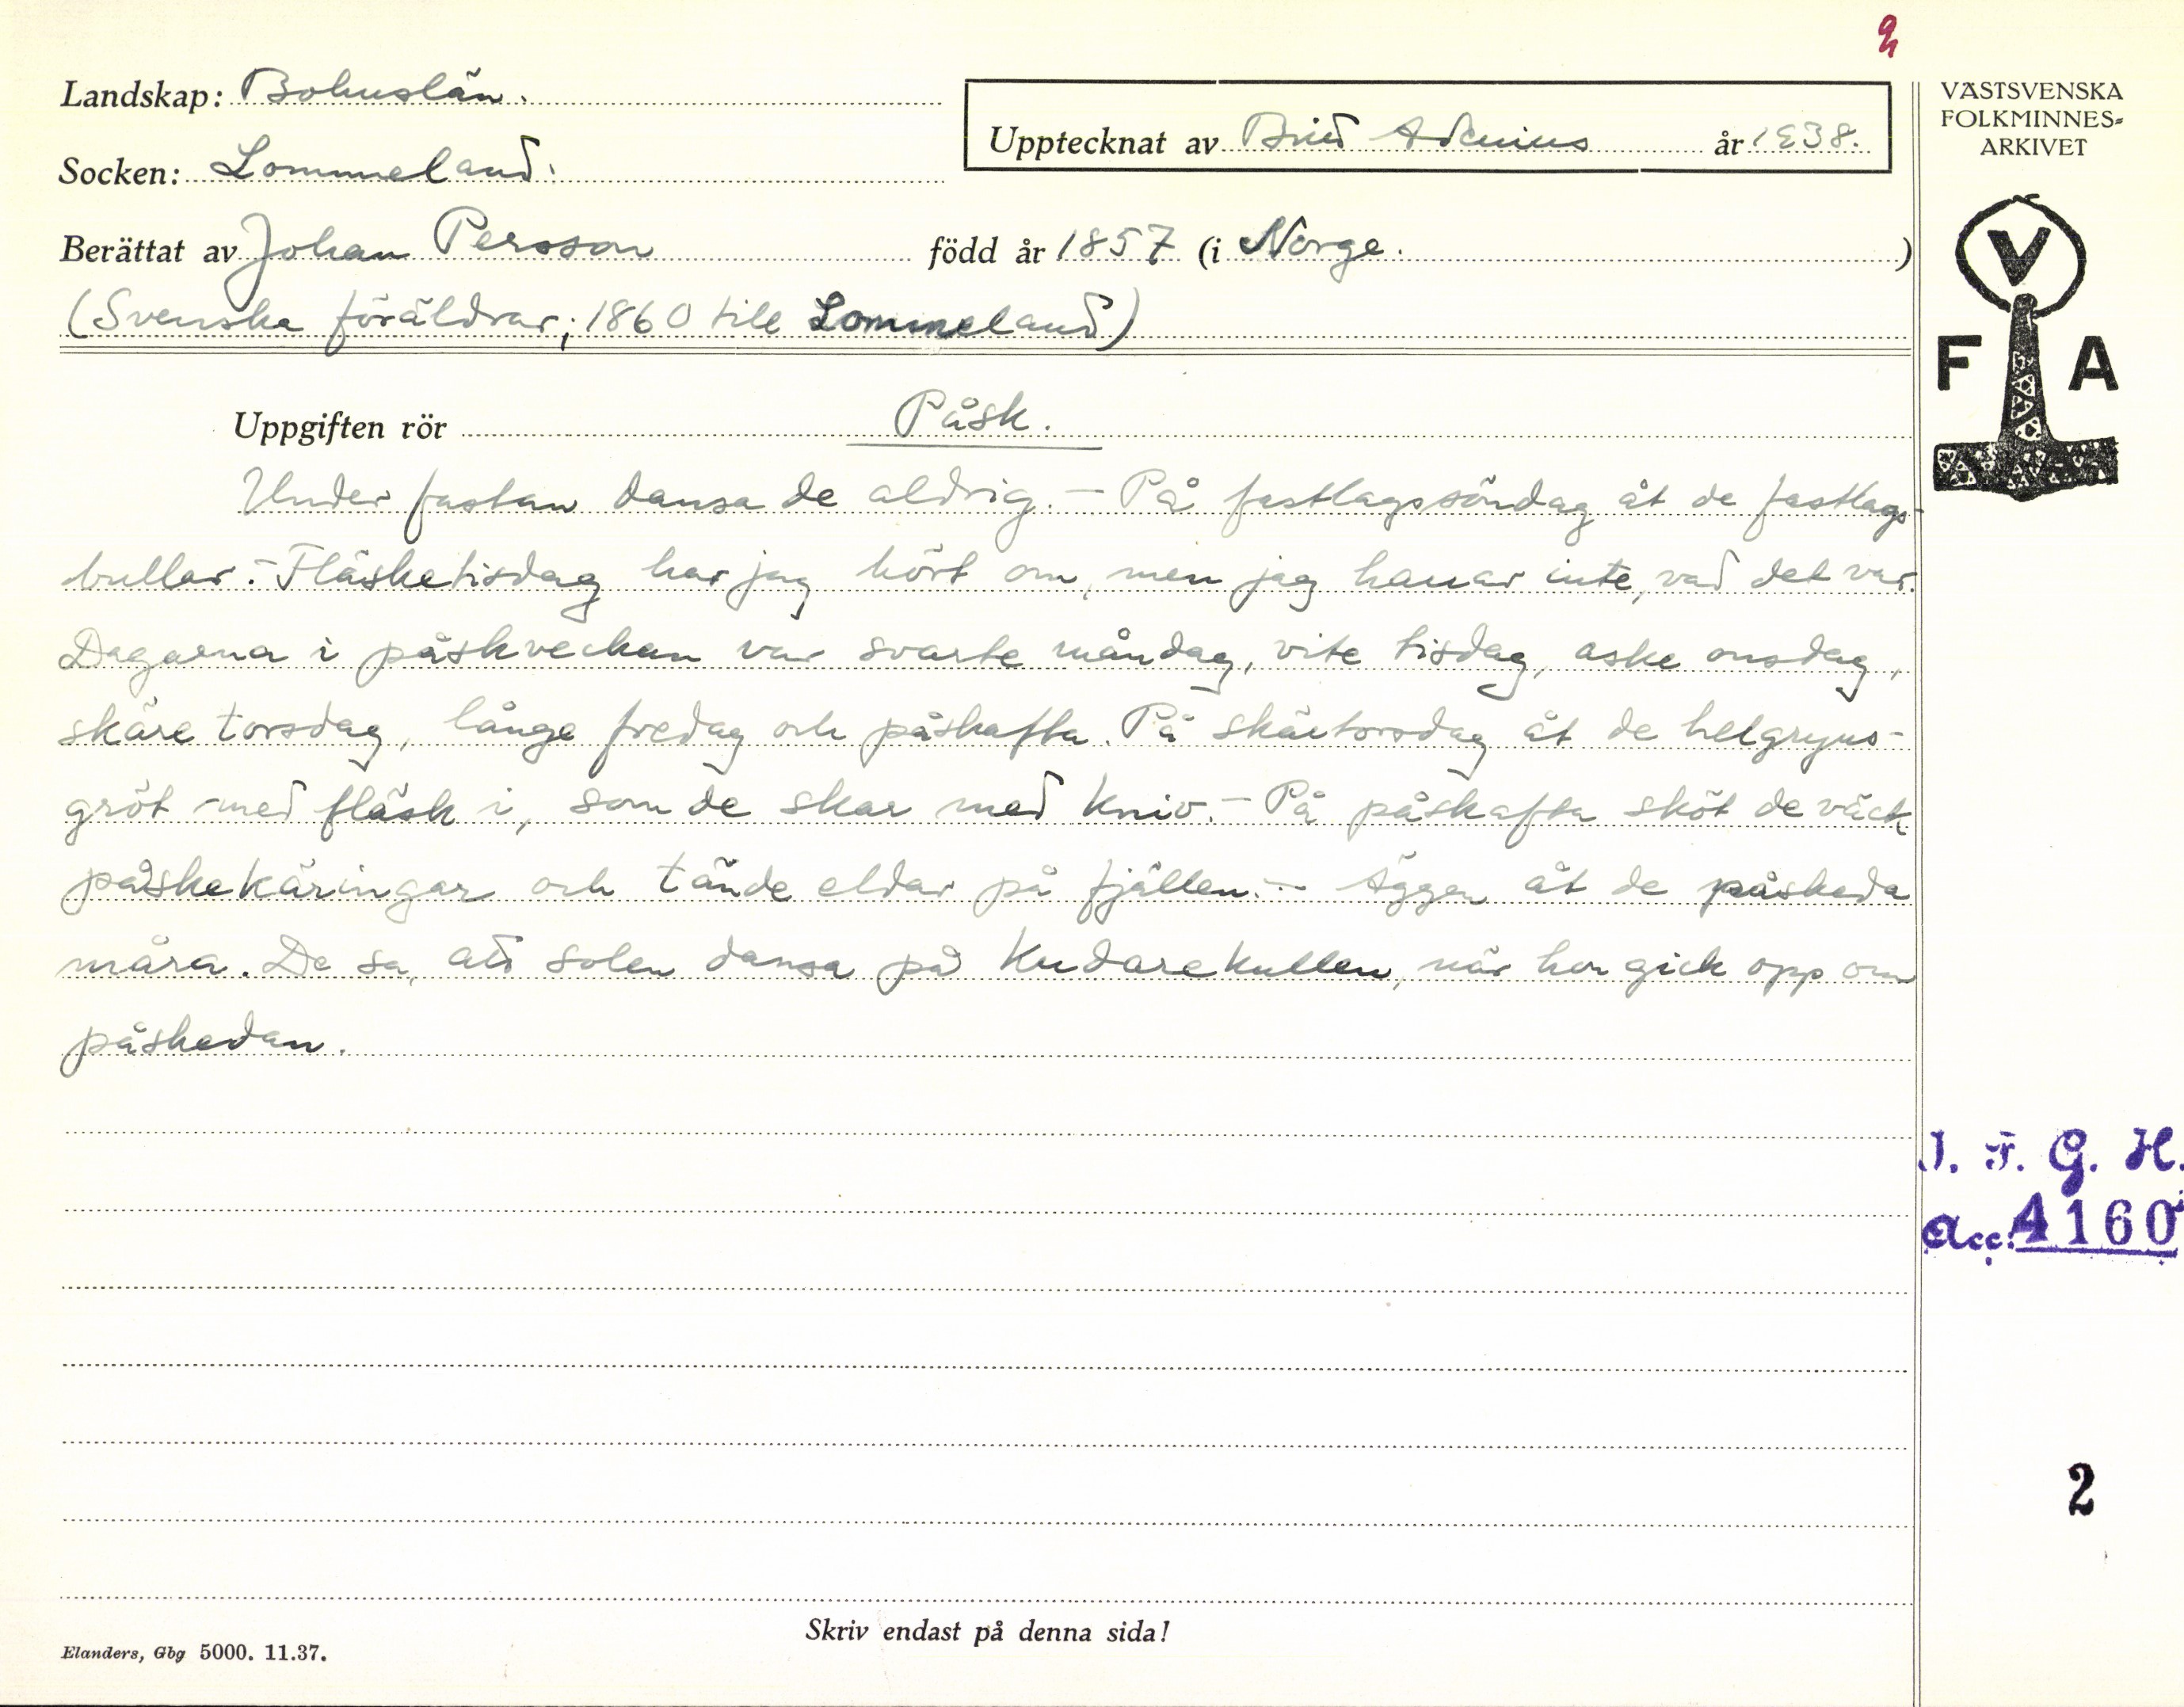 2
Landskap: Bohuslän.
VÄSTSVENSKA
FOLKMINNES-
ARKIVET
Upptecknat av Adenius år 1938.
Socken: Lommeland.
Berättat av Johan Persson född år 1857 (i Norge. )
(Svenska föräldrar; 1860 till Lommeland)
V
F A
Uppgiften rör Påsk.
Under fastan dansa de aldrig. - På fastlagssöndag åt de fastlags-
bullar. - Fläsketisdag har jag hört om, men jag kanar inte, vad det var.
Dagarna i påskveckan var svarte måndag, vite tisdag, aske onsdag,
skäre torsdag, långe fredag och påskafta. På skärtorsdag åt de helgryns-
gröt med fläsk i, som de skar med kniv. - På påskafta sköt de väck
påskekäringar och tände eldar på fjällen. - Äggen åt de påskeda
måra. De sa, att solen dansa på Kudarekullen, när hon gick opp om
påskedan.
I. F. G. H.
Acc. 4160
2
Skriv endast på denna sida!
Elanders, Gbg 5000. 11.37.